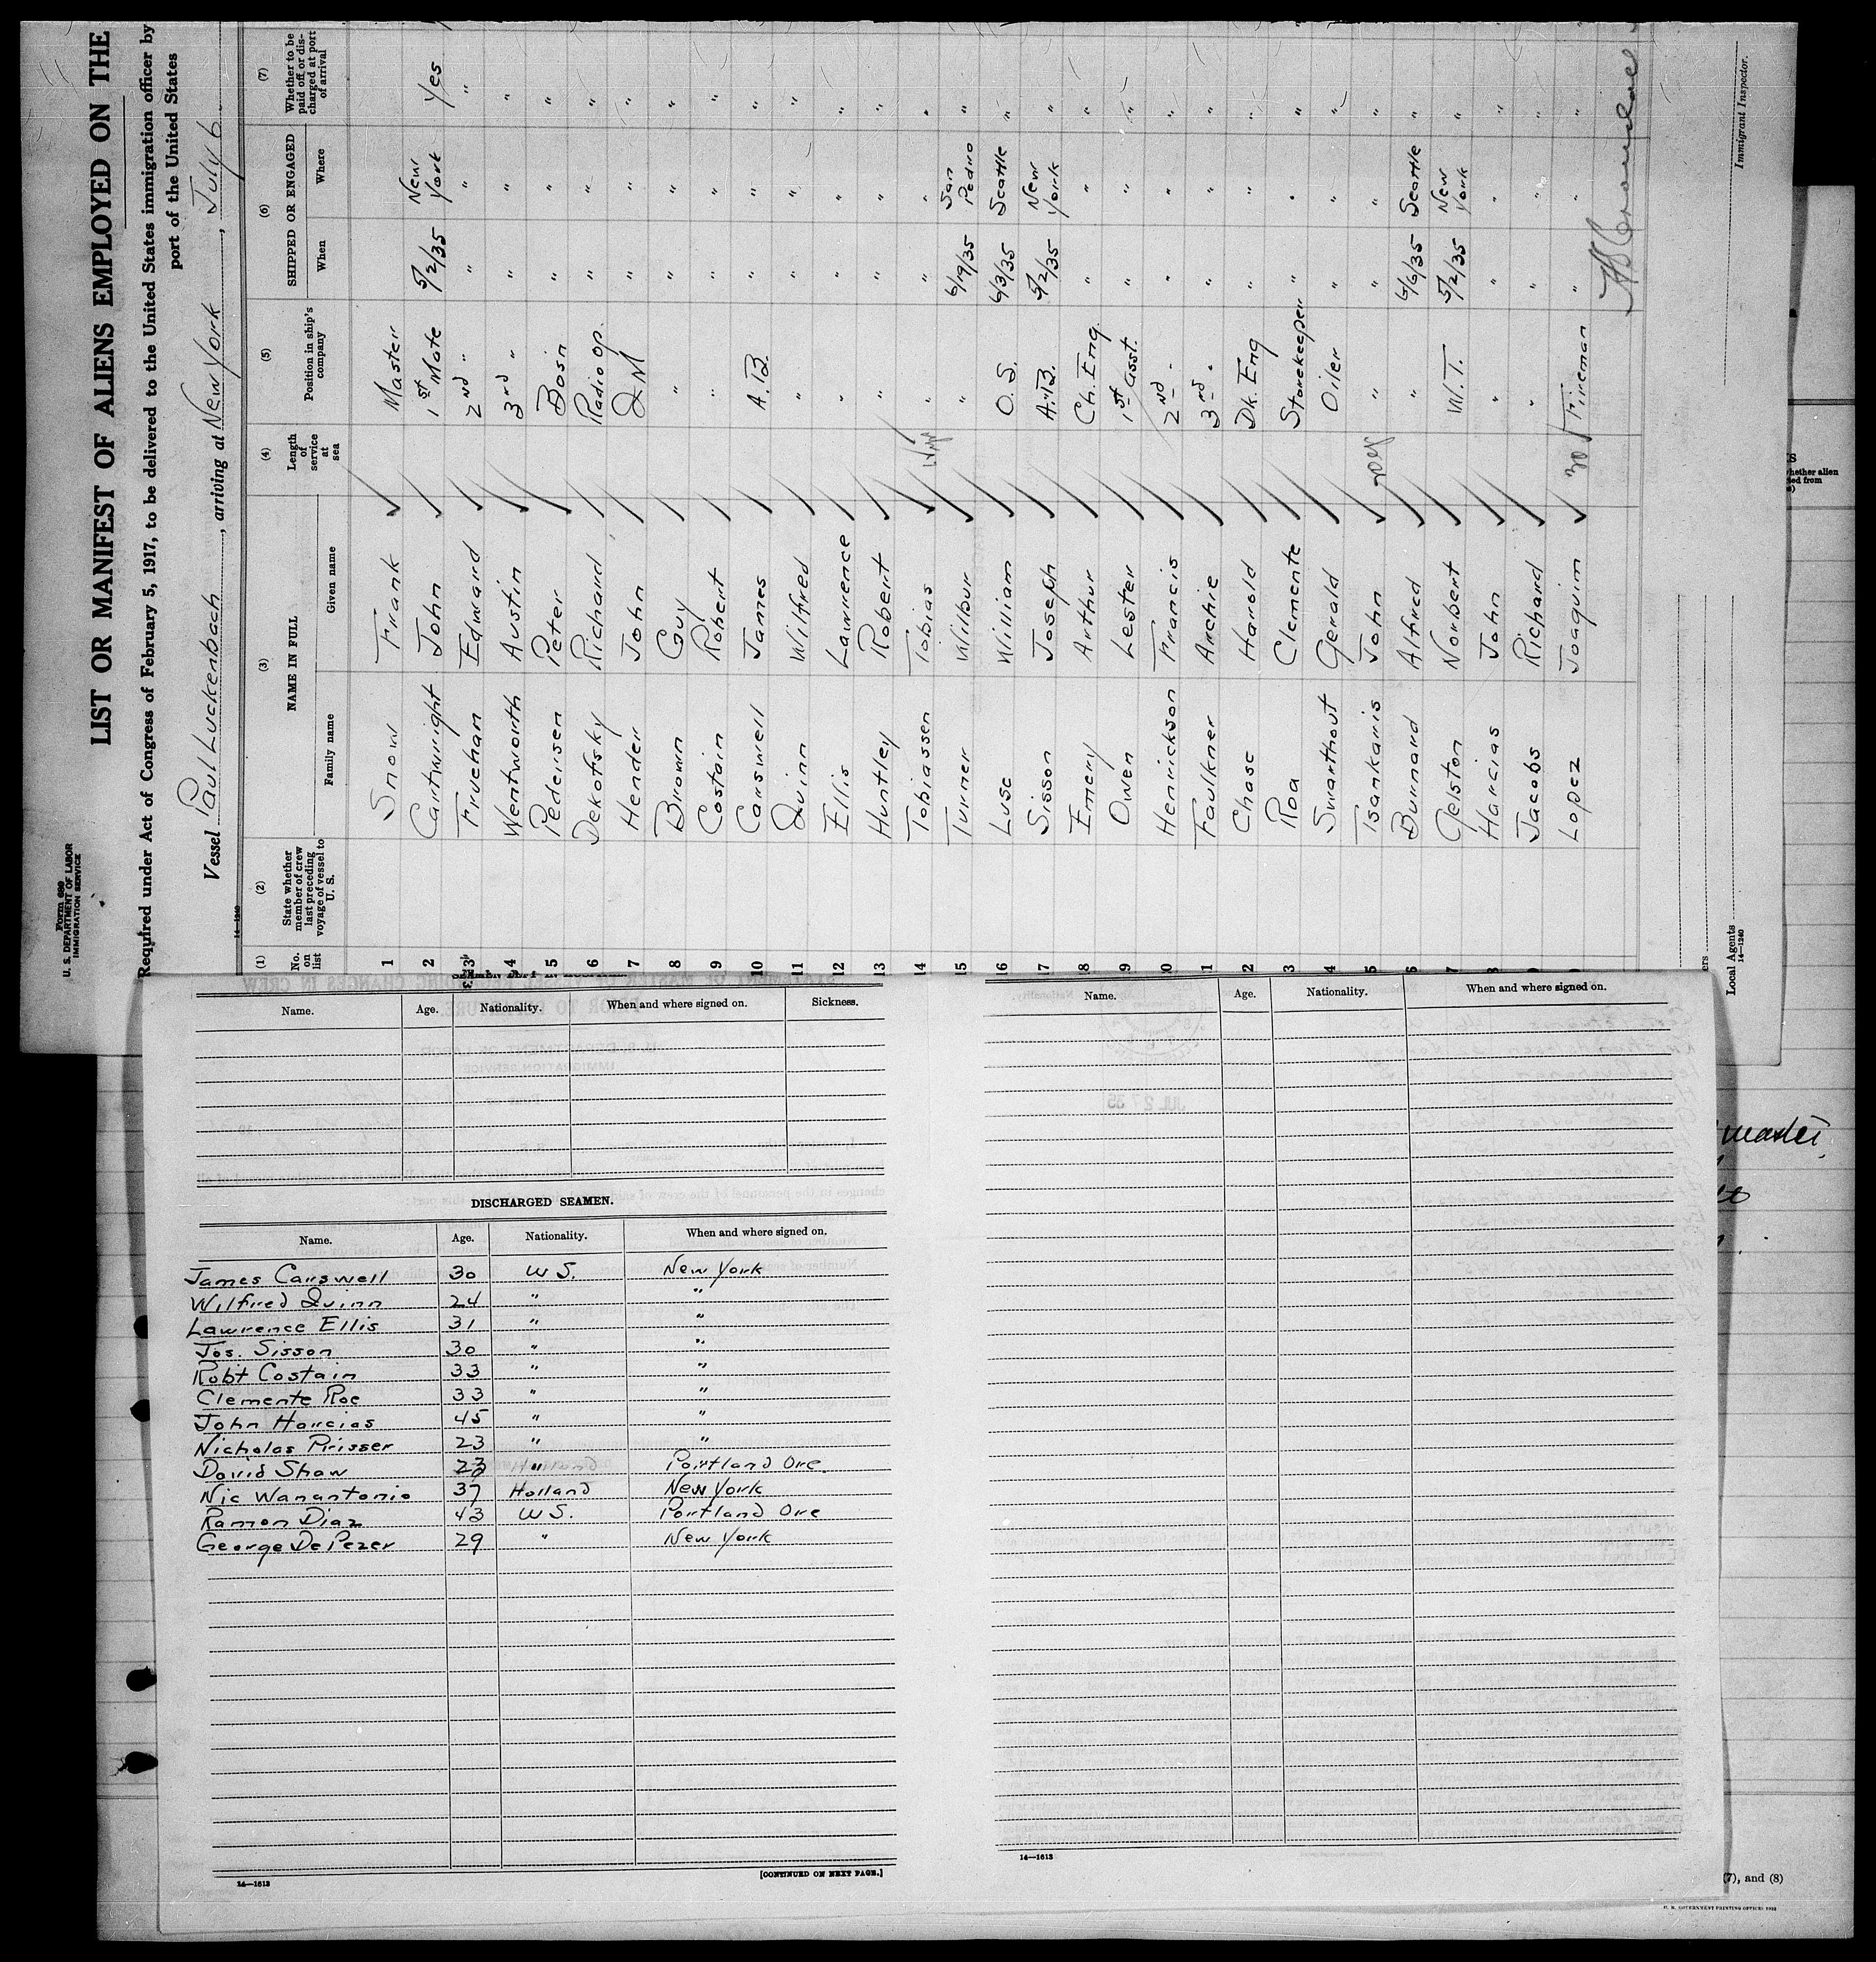 Form 689
U. S. DEPARTMENT OF LABOR
IMMIGRATION SERVICE
LIST OR MANIFEST OF ALIENS EMPLOYED ON THE
Required under Act of Congress of February 5, 1917, to be delivered to the United States immigration officer by
port of the United States
Vessel Paul Luckenbach, arriving at New York, July 6
14—1240
(1) (2) (3) (4) (5) (6) (7)
No. on list
State whether member of crew last preceding voyage of vessel to U. S.
NAME IN FULL
Family name Given name
Length of service at sea
Position in ship's company
SHIPPED OR ENGAGED
When Where
Whether to be paid off or discharged at port of arrival
1 Snow Frank Master
2 Cartwright John 1st Mate 5/2/35 New York Yes
3 Fruehan Edward 2nd " " " "
4 Wentworth Austin 3rd " " " "
5 Pedersen Peter Bosn " " "
6 Dekofsky Richard Radio Op. " " "
7 Hender John Q M " " "
8 Brown Guy " " " "
9 Costain Robert " " " "
10 Carswell James A. B. " " "
11 Quinn Wilfred " " " "
12 Ellis Lawrence " " " "
13 Huntley Robert " " " "
14 Tobiassen Tobias " " " "
15 Turner Wilbur " 6/19/35 San Pedro "
16 Luse William O. S. 6/3/35 Seattle "
17 Sisson Joseph A. B. 5/2/35 New York "
8 Emery Arthur Ch. Eng. " " "
9 Owen Lester 1st Asst. " " "
0 Henrickson Francis 2nd " " " "
1 Faulkner Archie 3rd " " " "
2 Chase Harold Dk. Eng " " "
3 Roa Clemente Storekeeper " " "
4 Swarthout Gerald Oiler " " "
5 Tsankaris John " " " "
6 Burnard Alfred " 6/6/35 Seattle "
7 Gelston Norbert W. T. 5/2/35 New York "
8 Harcias John " " " "
Jacobs Richard " " " "
Lopez Joaquim 30 Fireman " " "
Immigrant Inspector.
Local Agents
14—1240
Name. Age. Nationality. When and where signed on. Sickness.
DISCHARGED SEAMEN.
Name. Age. Nationality. When and where signed on.
James Carswell 30 U S. New York
Wilfred Quinn 24 " "
Lawrence Ellis 31 " "
Jos. Sisson 30 " "
Robt Costain 33 " "
Clemente Roe 33 " "
John Harcias 45 " "
Nicholas Prisser 23 " "
David Shaw 23 " Portland Ore.
Nic Wanantonio 37 Holland New York
Ramon Diaz 43 U S. Portland Ore
George DePezer 29 " New York
[CONTINUED ON NEXT PAGE.]
14—1613
Name. Age. Nationality. When and where signed on.
14—1613
master,
(7), and (8)
U. S. GOVERNMENT PRINTING OFFICE: 1932